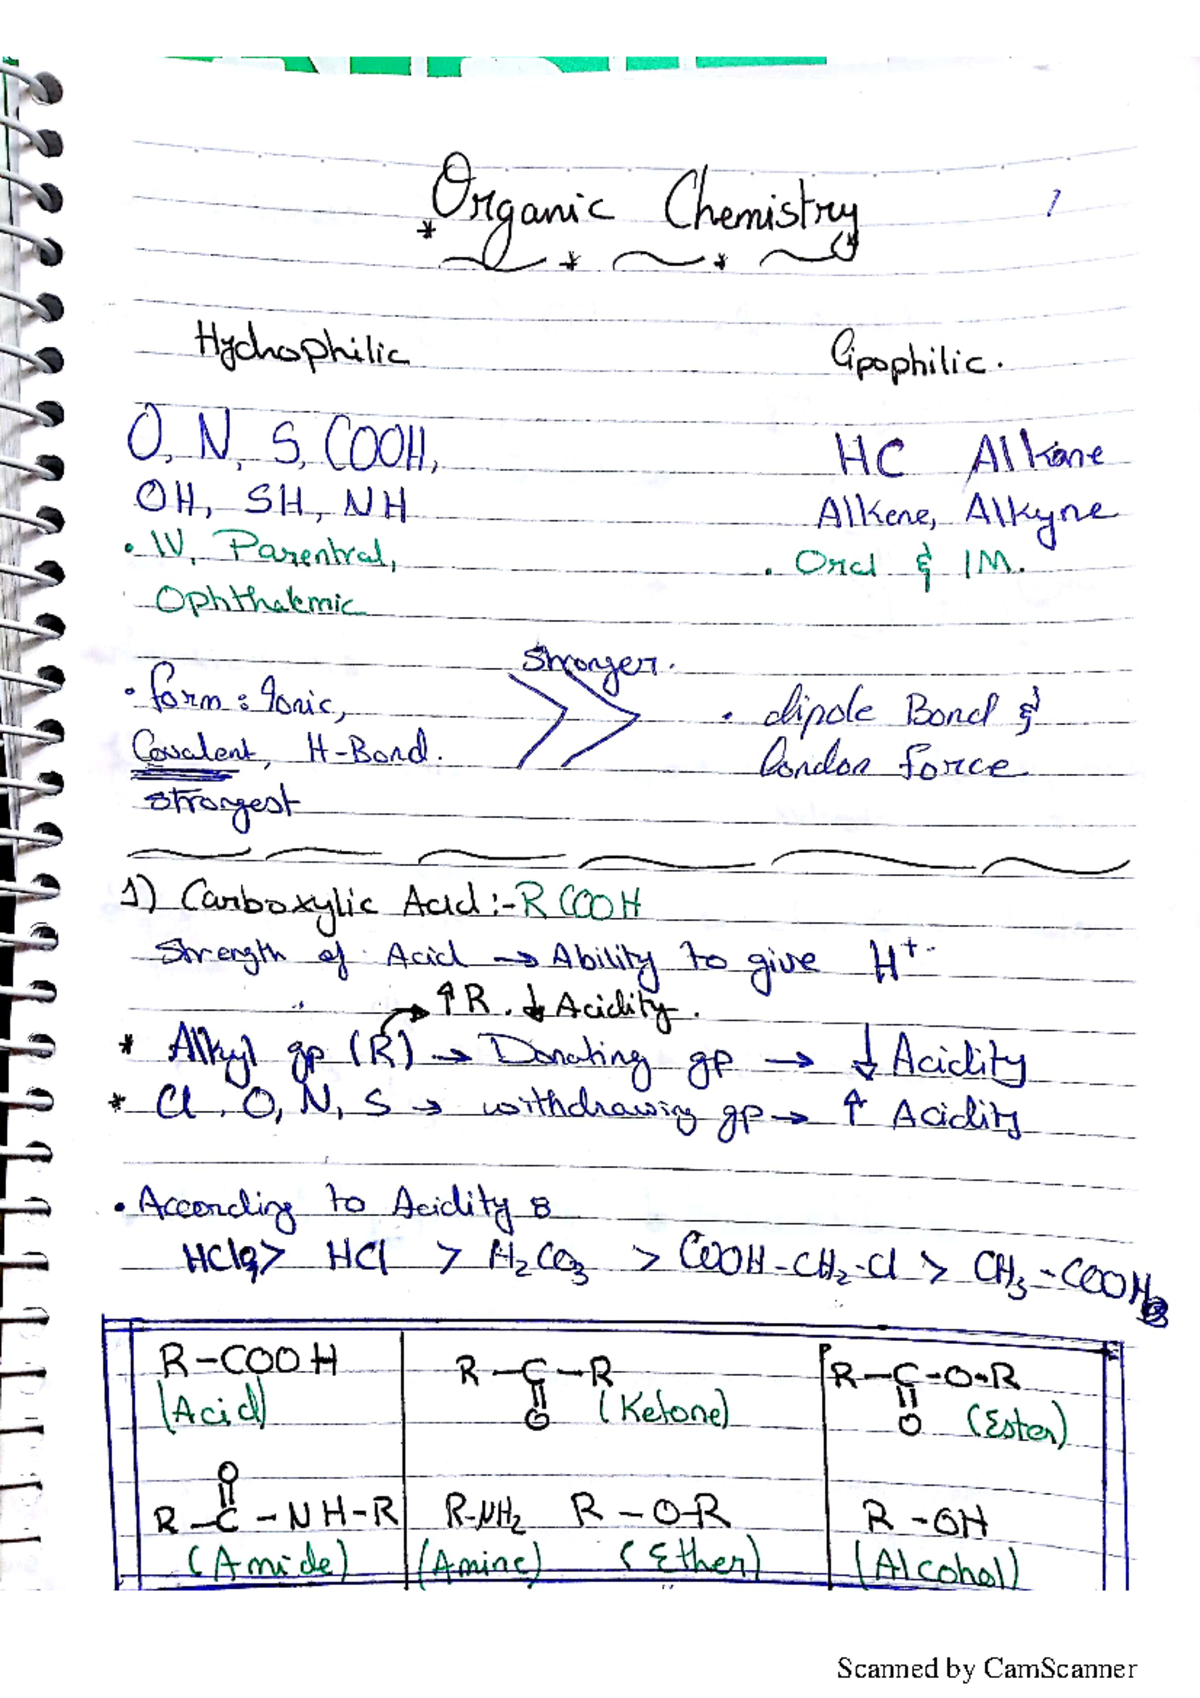 Organic Chemistry
1
Hydrophilic Lipophilic.
O, N, S, COOH, HC Alkane
OH, SH, NH Alkene, Alkyne
• IV, Parentral, • Oral & IM.
Ophthalmic
Stronger.
• form: Ionic, • dipole Bond &
Covalent, H-Bond. London force
strongest
1) Carboxylic Acid:- RCOOH
Strength of Acid → Ability to give H+.
↑R. ↓ Acidity.
* Alkyl gp (R) → Donating gp → ↓ Acidity
* Cl, O, N, S → withdrawing gp → ↑ Acidity
• According to Acidity:
HClO₄> HCl > H₂CO₃ > COOH-CH₂-Cl > CH₃-COOH
R-COOH R-C-R R-C-O-R
(Acid) O (Ketone) O (Ester)
O
R-C-NH-R R-NH₂ R-O-R R-OH
(Amide) (Amine) (Ether) (Alcohol)
Scanned by CamScanner